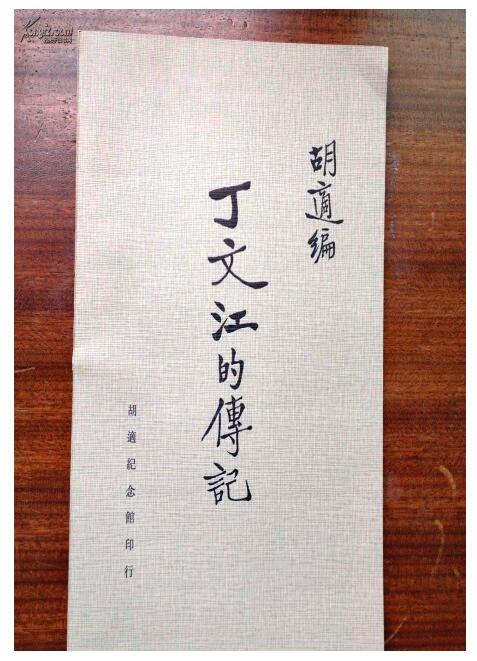 胡適編
丁文江的傳記
胡適紀念館印行